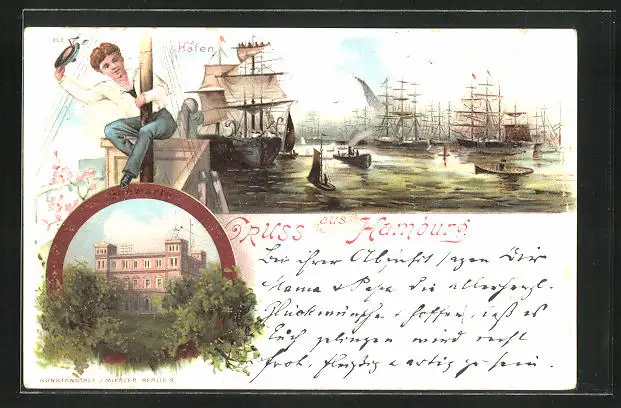 Hafen
Seewarte
Gruss aus Hamburg
Bei Ihrer Abfahrt sagen Dir
Mama & Papa die allerherzl.
Glückwünsche & hoffen, daß es
Euch gelingen wird recht
froh, fleißig & artig zu sein.
KUNSTANSTALT J. MIESLER BERLIN S.